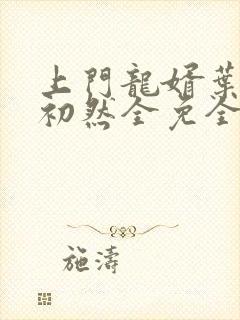 上門龍婿葉
初然全免全
施濤